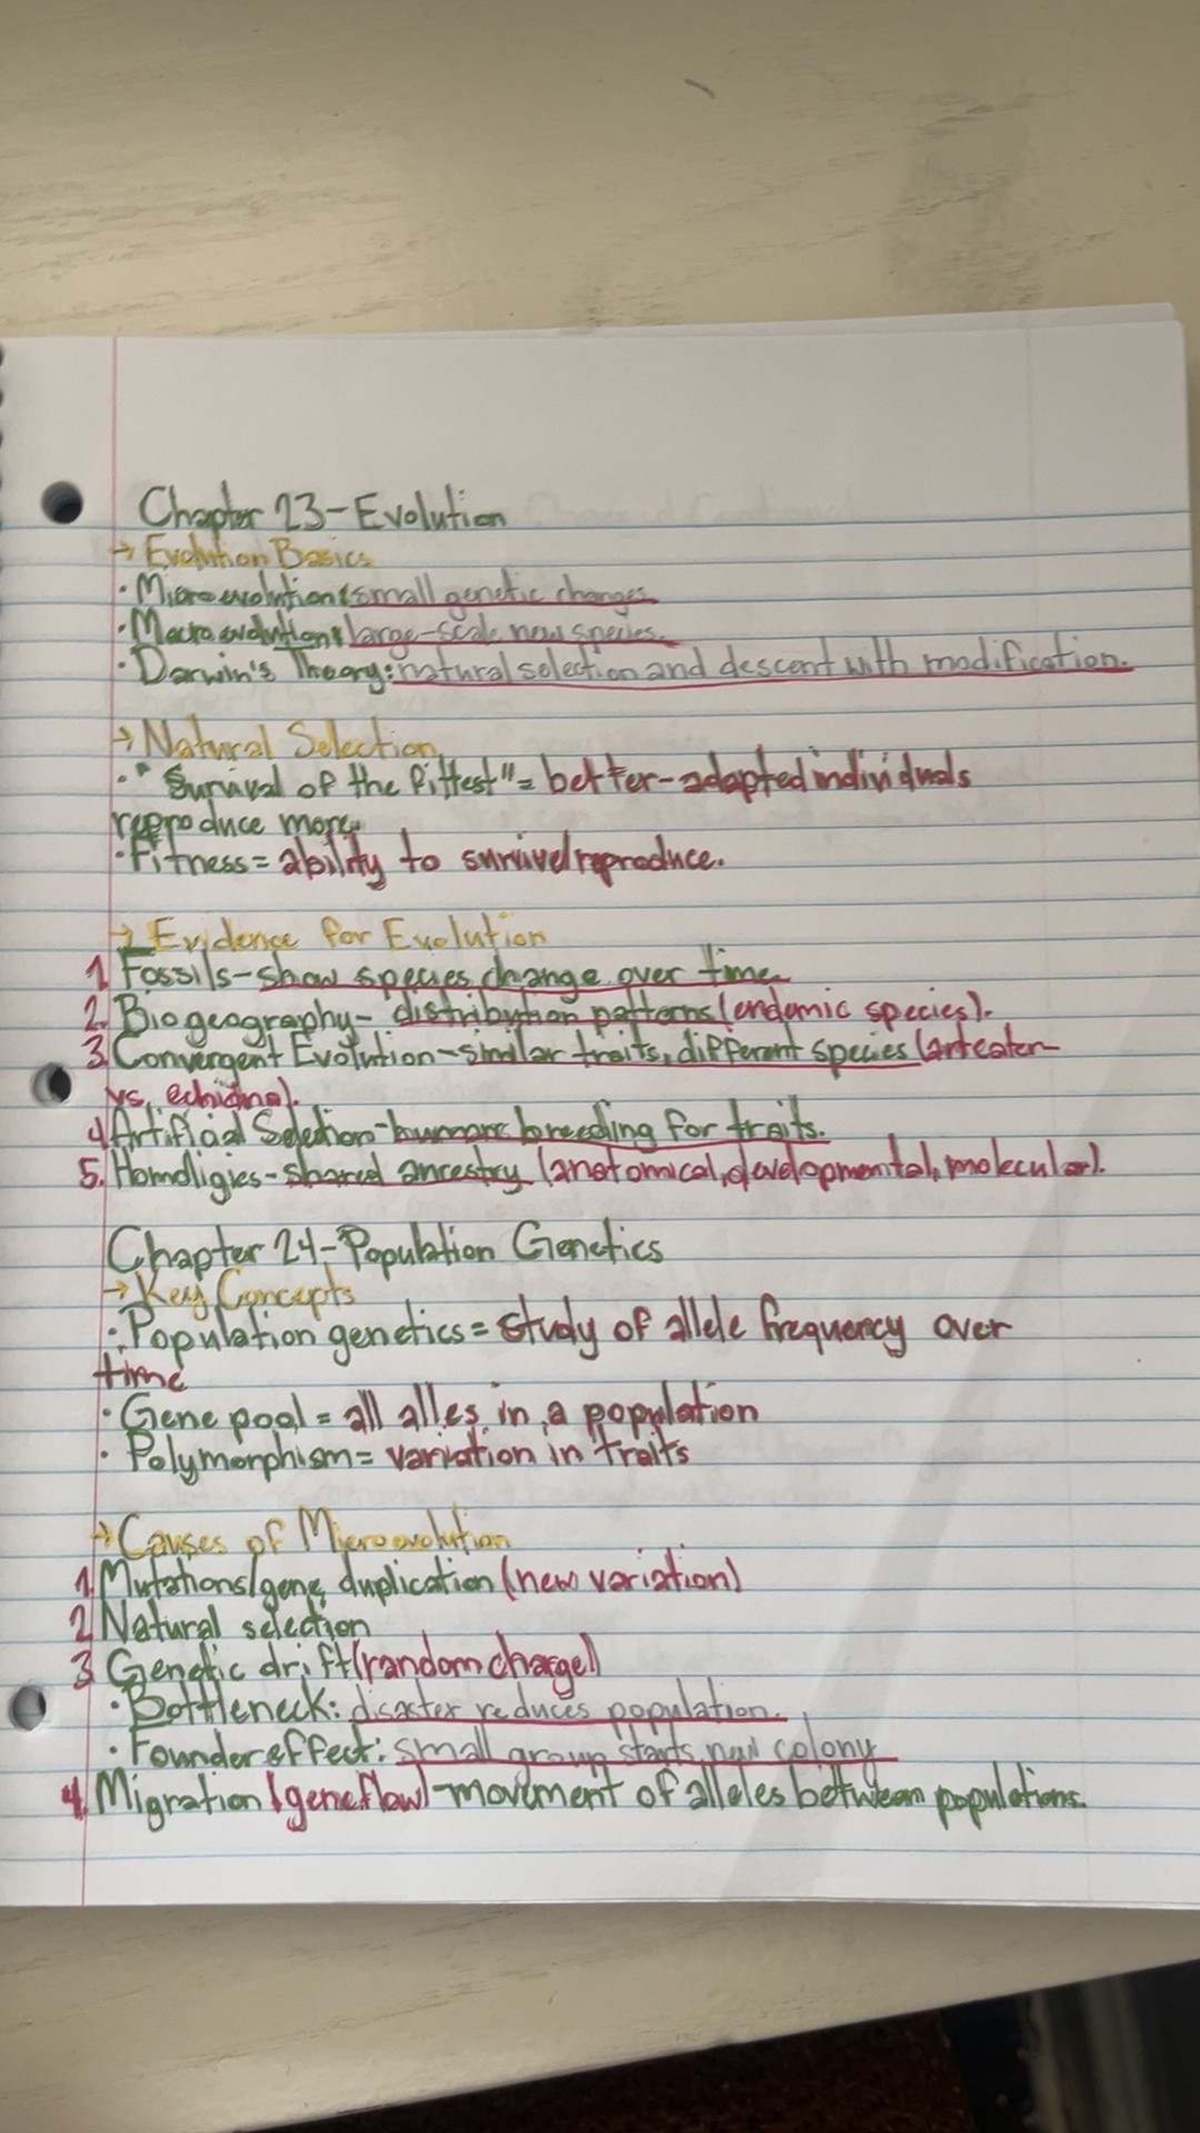 Chapter 23-Evolution
→ Evolution Basics
· Microevolution: small genetic changes
· Macroevolution: large-scale, new species.
· Darwin's Theory: natural selection and descent with modification.
→ Natural Selection
· "Survival of the fittest" = better-adapted individuals
reproduce more.
· Fitness = ability to survive/reproduce.
→ Evidence for Evolution
1. Fossils-show species change over time.
2. Biogeography- distribution patterns (endemic species).
3. Convergent Evolution-similar traits, different species (anteater
vs. echidna).
4. Artificial Selection-human breeding for traits.
5. Homoligies-shared ancestry (anatomical, developmental, molecular).
Chapter 24-Population Genetics
→ Key Concepts
· Population genetics = study of allele frequency over
time
· Gene pool = all alles in a population
· Polymorphism = variation in traits
→ Causes of Microevolution
1. Mutations/gene duplication (new variation)
2. Natural selection
3. Genetic drift (random change)
· Bottleneck: disaster reduces population.
· Founder effect: small group starts new colony
4. Migration (gene flow)-movement of alleles between populations.